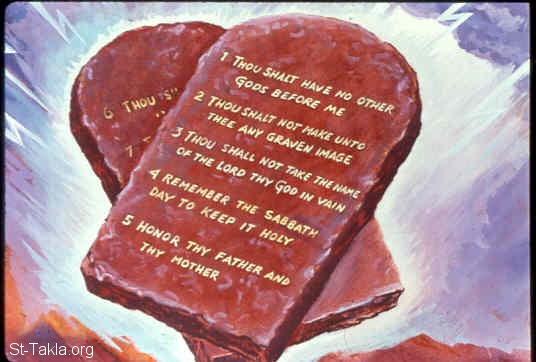 1 THOU SHALT HAVE NO OTHER
GODS BEFORE ME
2 THOU SHALT NOT MAKE UNTO
THEE ANY GRAVEN IMAGE
3 THOU SHALL NOT TAKE THE NAME
OF THE LORD THY GOD IN VAIN
4 REMEMBER THE SABBATH
DAY TO KEEP IT HOLY
5 HONOR THY FATHER AND
THY MOTHER
6 THOU
7
St-Takla.org